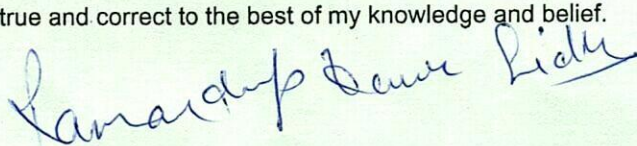 true and correct to the best of my knowledge and belief.
Ramandeep Kaur Sidhu